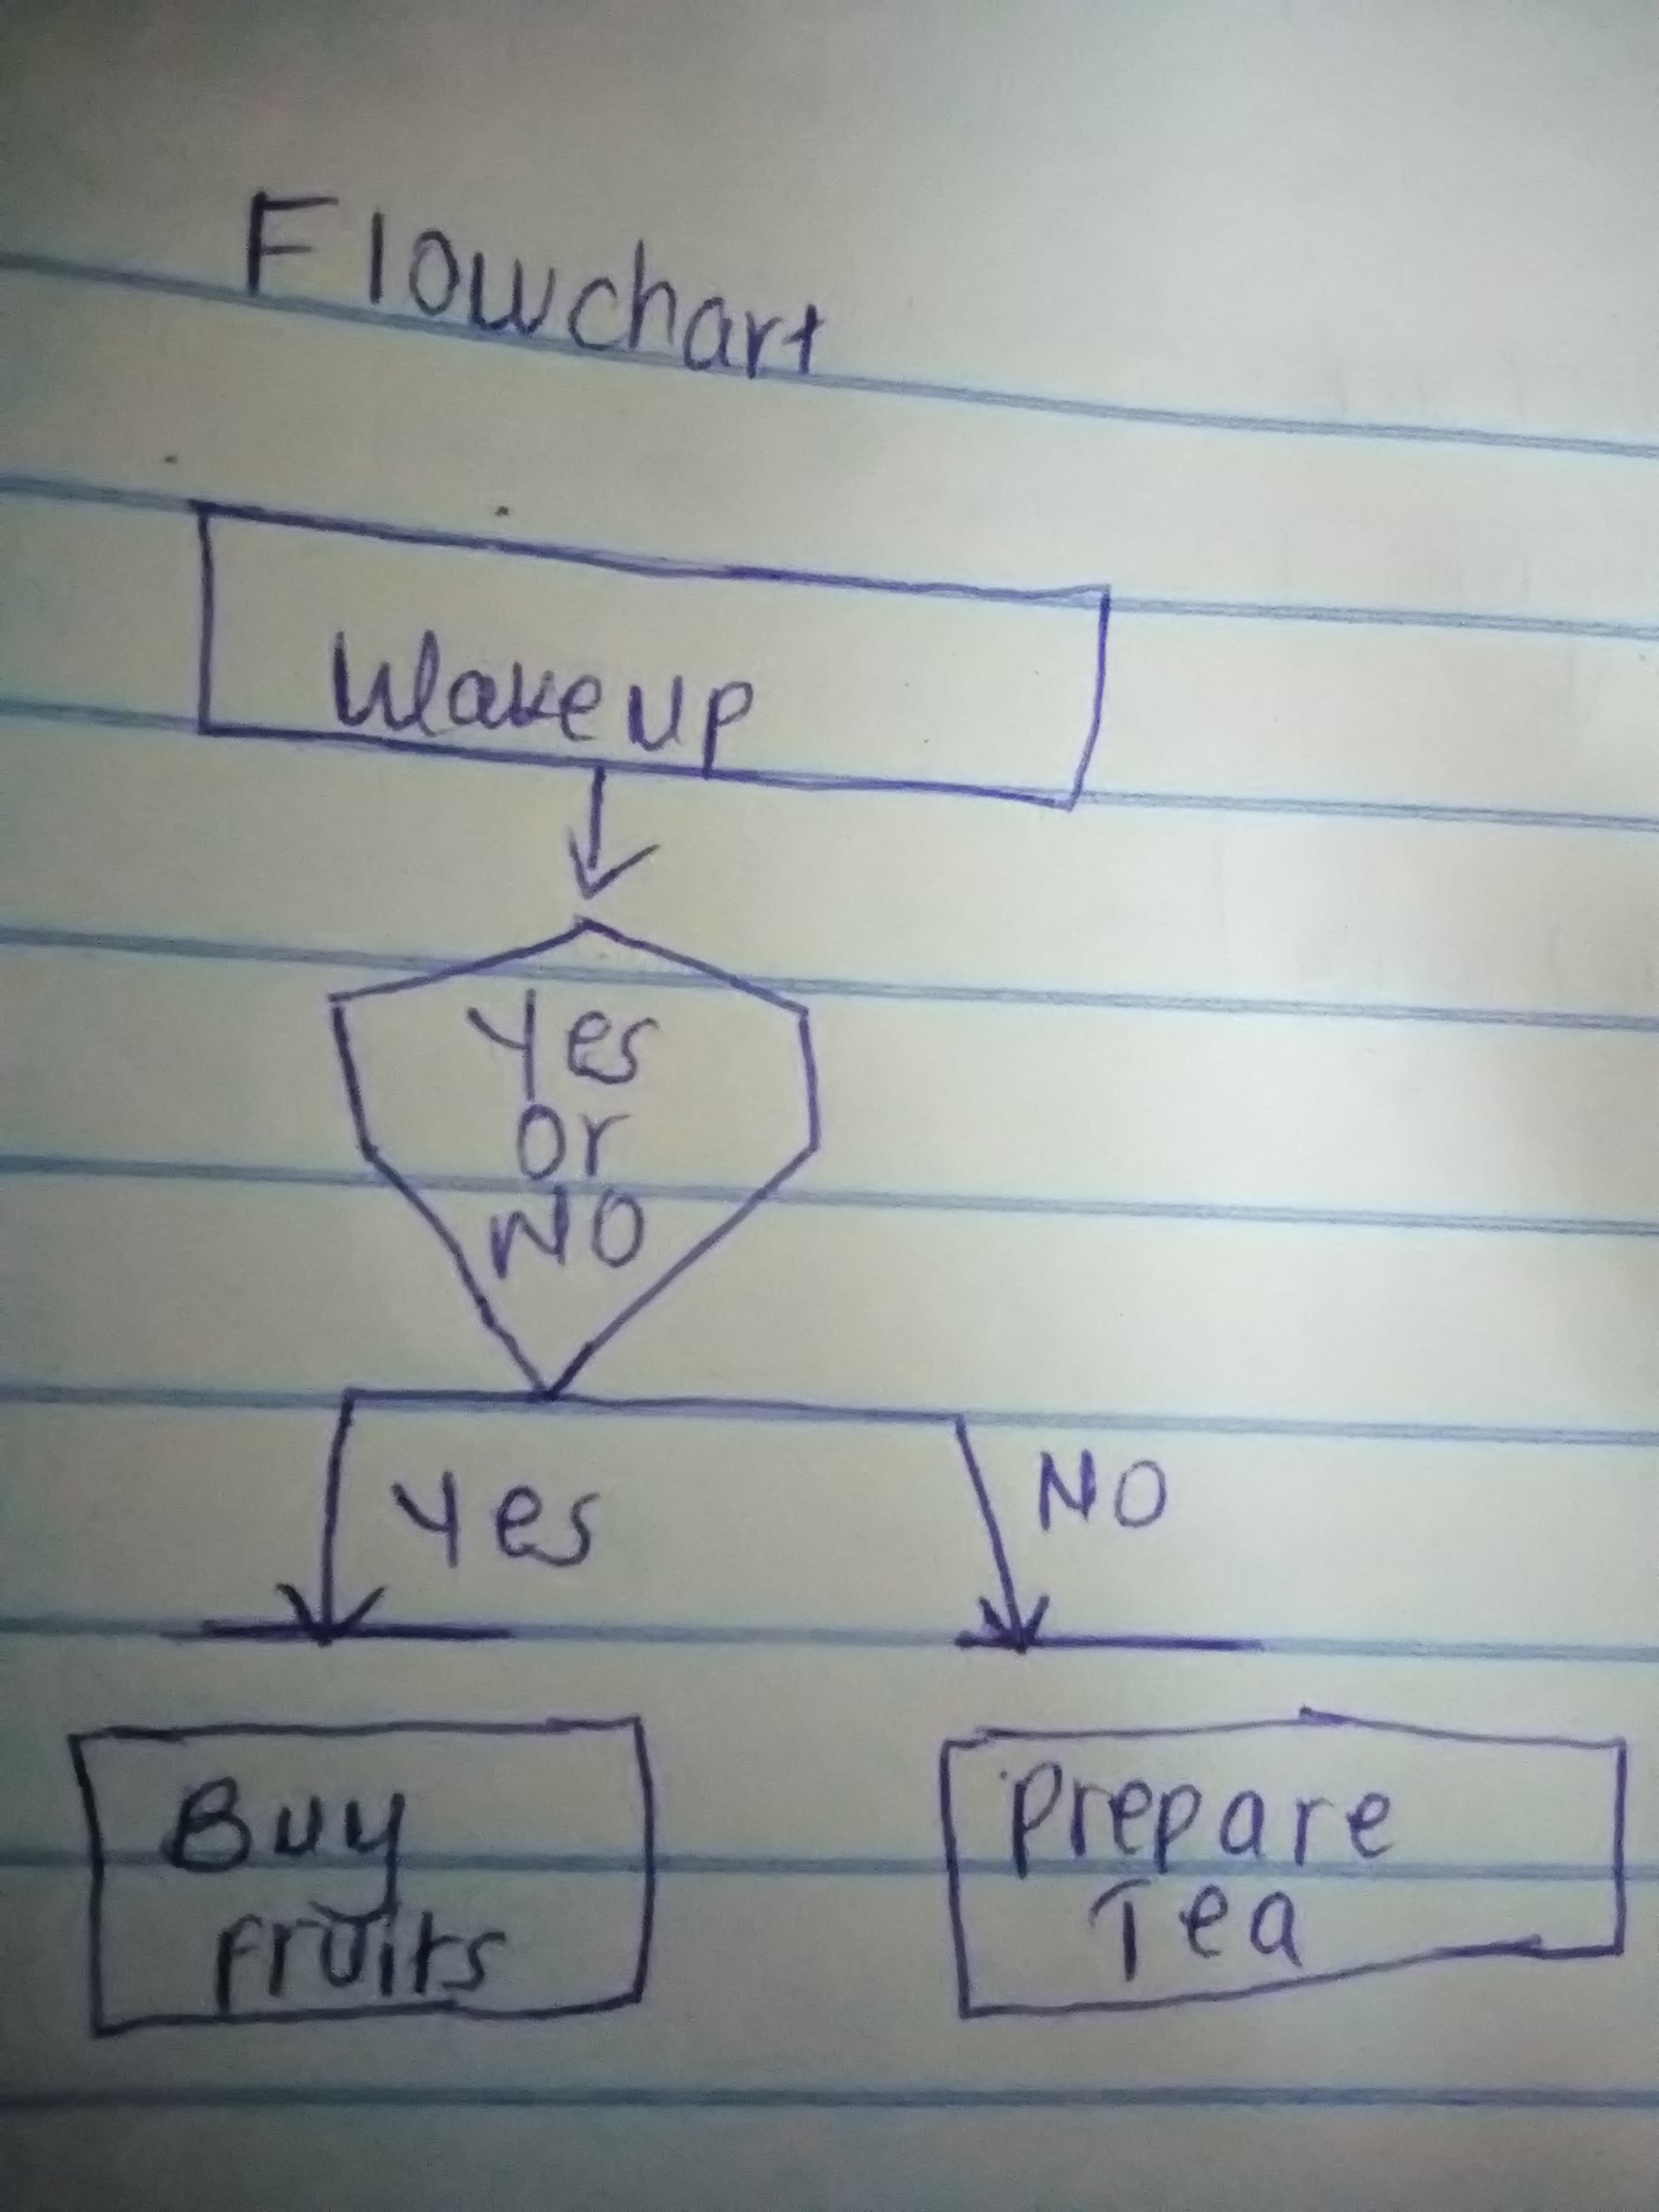 Flowchart
Wake up
Yes
Or
NO
Yes
NO
Buy
fruits
Prepare
Tea